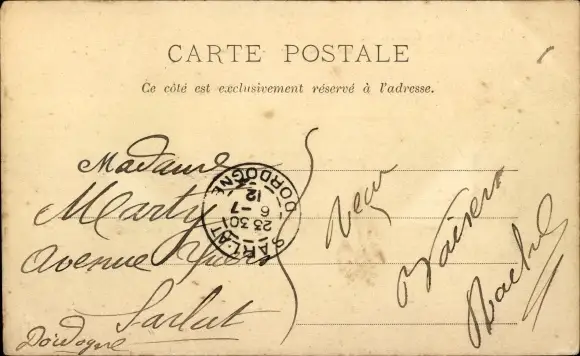 CARTE POSTALE
Ce côté est exclusivement réservé à l'adresse.
Madame
Marty
Avenue
Sarlat
Dordogne
SARLAT
23 30
6 -7
12
DORDOGNE
Baisers
Rachel